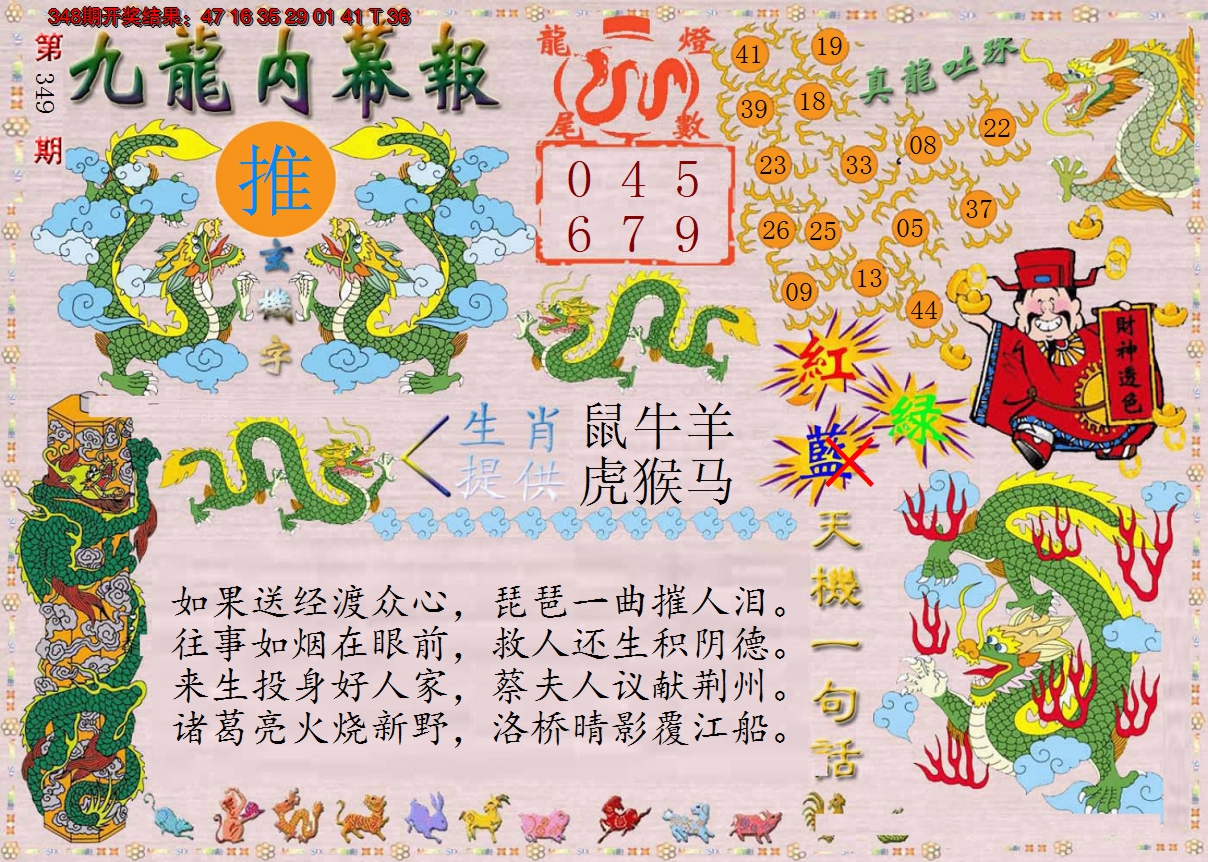 348期开奖结果：47 16 35 29 01 41 T 36
第349期
九龍内幕報
推
玄機字
龍燈
尾數
0 4 5
6 7 9
真龍吐珠
41 19
39 18
23 33 08 22
26 25 05 37
09 13 44
紅
綠
藍
財神透色
生肖提供
鼠牛羊
虎猴马
天機一句話
如果送经渡众心，琵琶一曲摧人泪。
往事如烟在眼前，救人还生积阴德。
来生投身好人家，蔡夫人议献荆州。
诸葛亮火烧新野，洛桥晴影覆江船。